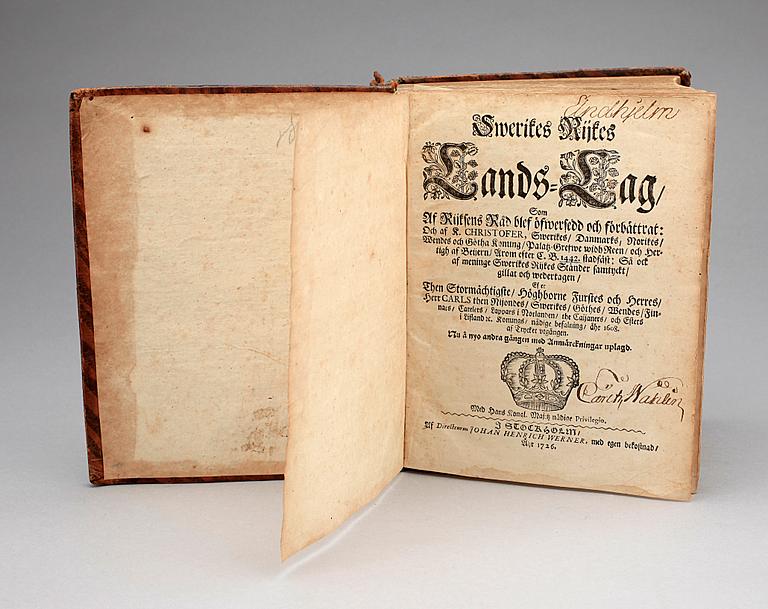 Lindhjelm
Swerikes Rijkes
Lands-Lag/
Som
Af Rijksens Råd blef öfwersedd och förbättrat:
Och af K. CHRISTOFER, Swerikes/ Danmarks, Norikes/
Wendes och Götha Konung/ Palatz-Grefwe widh Reen/ och Her-
tigh af Beijern/ Årom efter C. B. 1442. stadfäst: Så ock
af meninge Swerikes Rijkes Ständer samtyckt/
gillat och wedertagen/
Efter
Then Stormächtigste/ Höghborne Furstes och Herres/
Herr CARLS then Nijondes/ Swerikes/ Göthes/ Wendes/ Fin-
nars/ Carelers/ Lappars i Norlanden/ the Caijaners/ och Esters
i Lifland ꝛc. Konungs/ nådige befalning/ åhr 1608.
af Trycket utgången.
Nu å nyo andra gången med Anmärckningar uplagd.
Med Hans Kongl. Maj:tz nådige Privilegio.
I STOCKHOLM/
Af Directeuren JOHAN HENRICH WERNER, med egen bekostnad/
Åhr 1726.